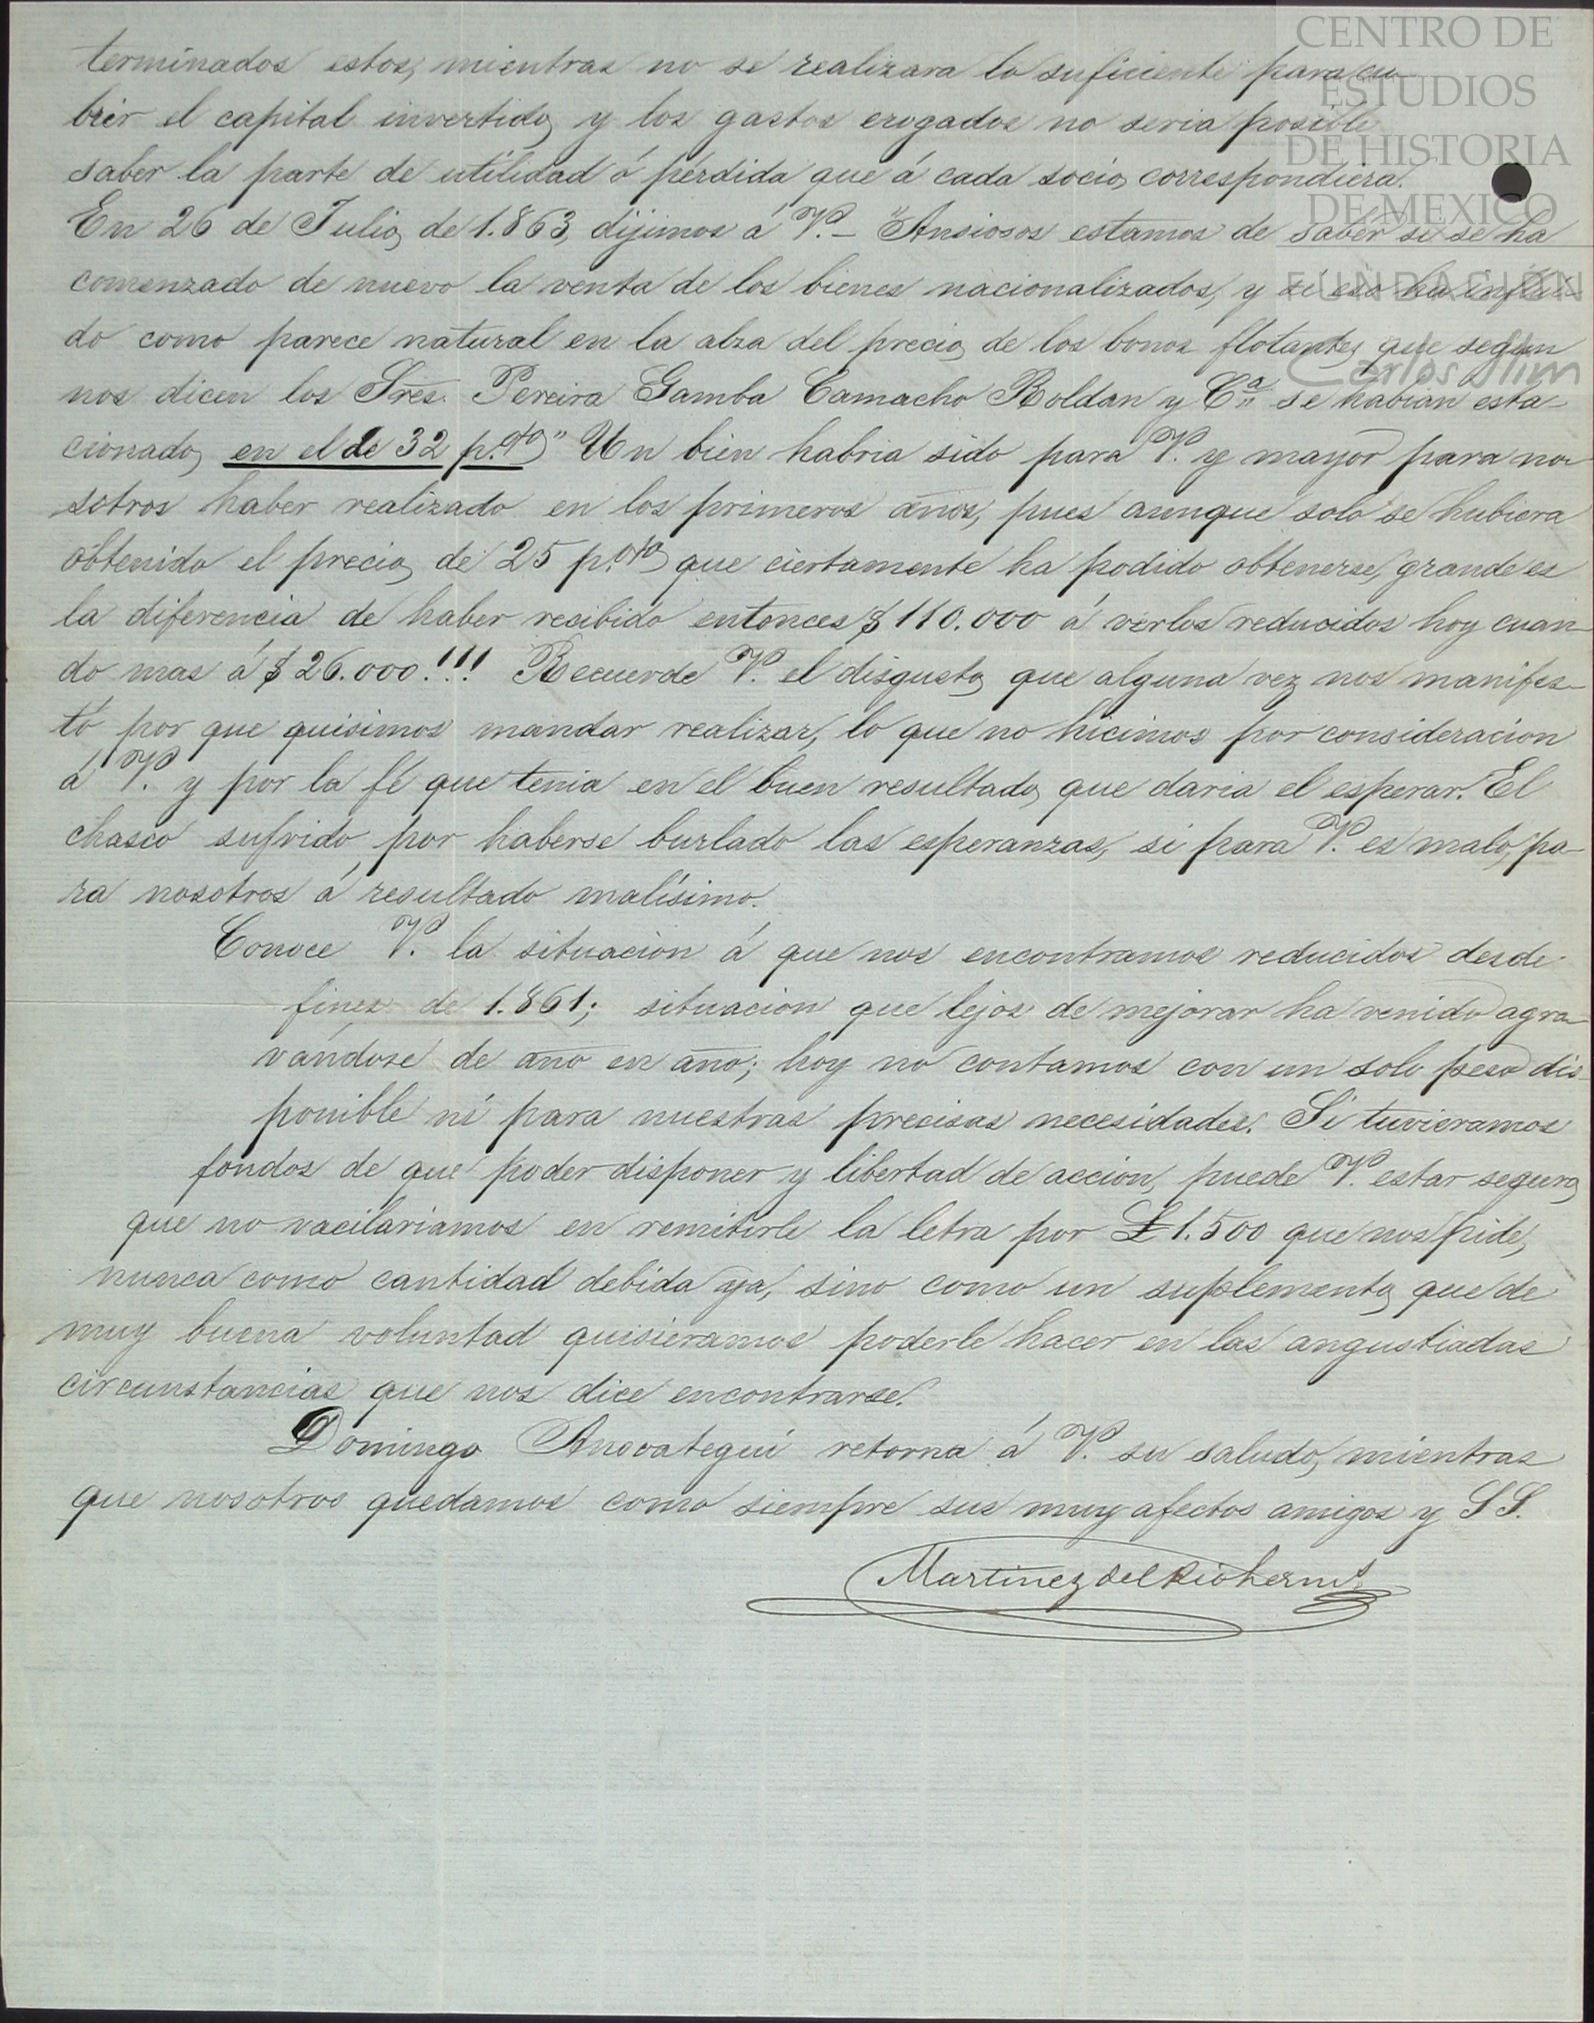 CENTRO DE
ESTUDIOS
DE HISTORIA
DE MEXICO
FUNDACIÓN
Carlos Slim
terminados estos, mientras no se realizara lo suficiente para cu-
brir el capital invertido, y los gastos erogados no seria posible
saber la parte de utilidad ó pérdida que á cada socio, correspondiera.
En 26 de Julio, de 1.863, dijimos á V.- "Ansiosos estamos de saber si se ha
comenzado de nuevo la venta de los bienes nacionalizados, y si eso ha influi-
do como parece natural en la alza del precio, de los bonos flotantes, que segun
nos dicen los Sres. Pereira Gamba Camacho Roldan y Cª. se habian esta-
cionado, en el de 32 p.%" Un bien habria sido para V. y mayor para no-
sotros haber realizado en los primeros años, pues aunque solo se hubiera
obtenido el precio, de 25 p.% que ciertamente ha podido obtenerse, grande es
la diferencia de haber recibido entonces $110.000 á verlos reducidos hoy cuan-
do mas á $26.000.!!! Recuerde V. el disgusto, que alguna vez nos manifes-
tó por que quisimos mandar realizar, lo que no hicimos por consideracion
á V. y por la fé que tenia en el buen resultado, que daria el esperar. El
chasco sufrido, por haberse burlado las esperanzas, si para V. es malo, pa-
ra nosotros á resultado malísimo.
Conoce V. la situacion á que nos encontramos reducidos desde
fines de 1.861; situacion que lejos de mejorar ha venido agra-
vándose de año en año; hoy no contamos con un solo peso dis-
ponible ni para nuestras precisas necesidades. Si tuvieramos
fondos de que poder disponer y libertad de accion, puede V. estar seguro,
que no vacilariamos en remitirle la letra por £1.500 que nos pide,
nunca como cantidad debida ya, sino como un suplemento, que de
muy buena voluntad quisieramos poderle hacer en las angustiadas
circunstancias que nos dice encontrarse.
Domingo Ansoategui retorna á V. su saludo, mientras
que nosotros quedamos como siempre sus muy afectos amigos y SS.
Martinez del Rio hermˢ